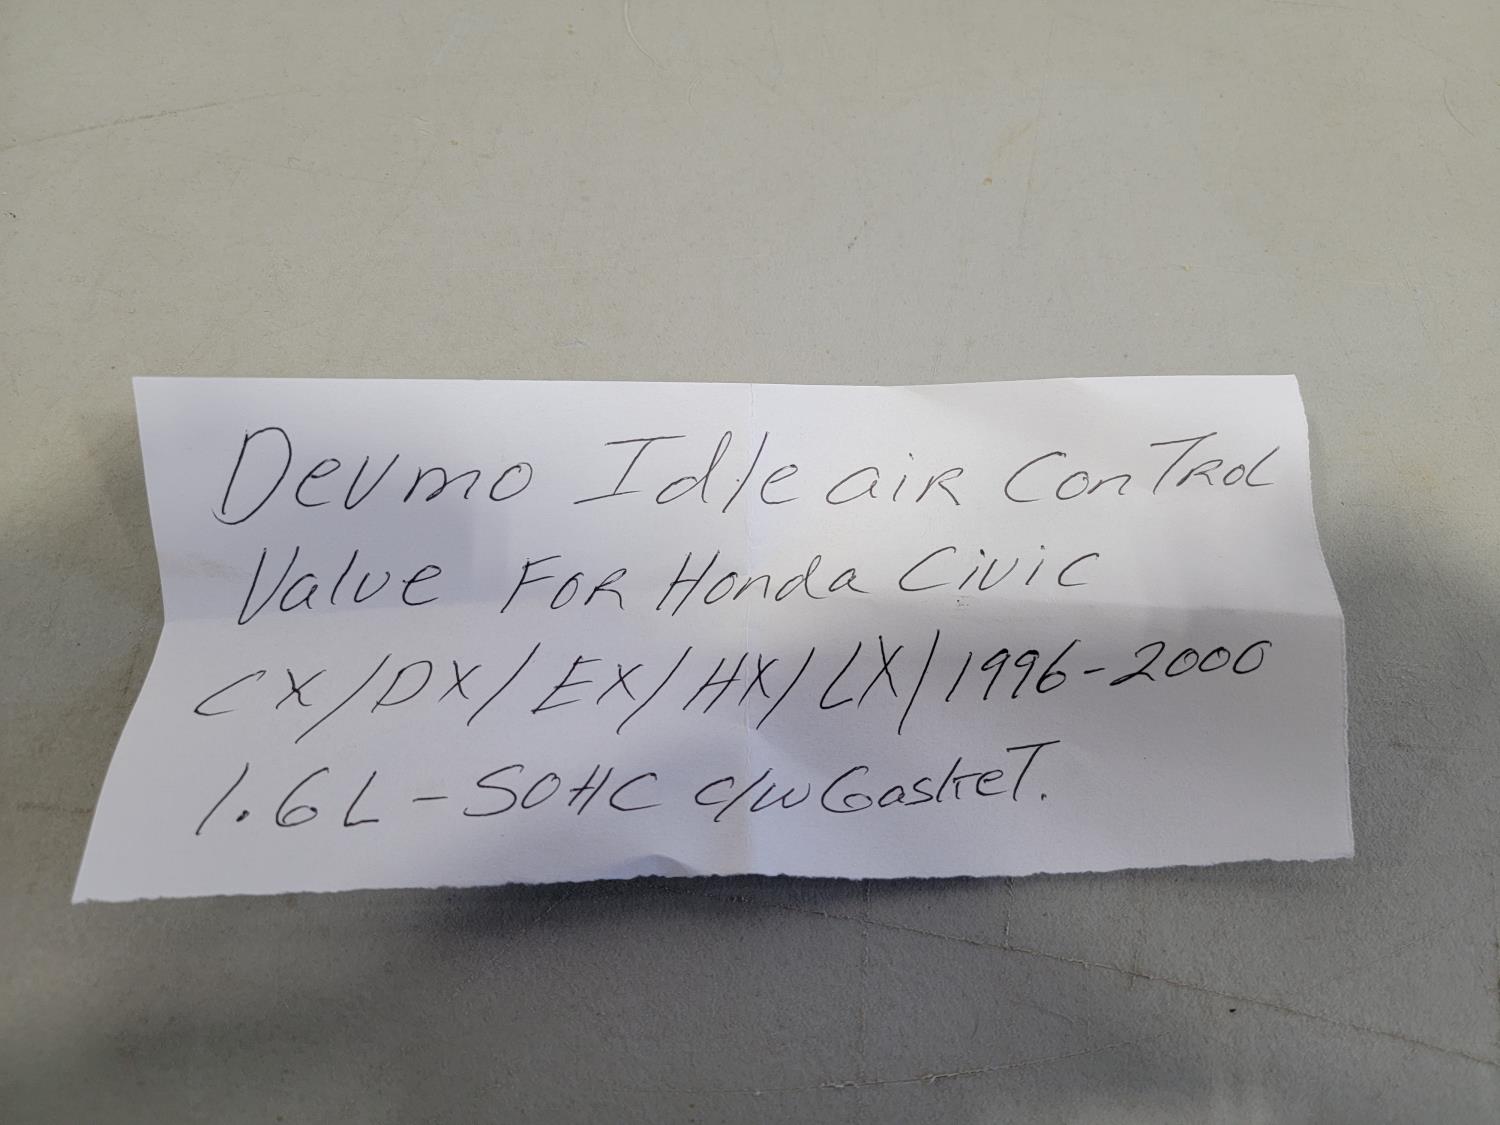 Devmo Idle air Control
Valve For Honda Civic
CX/DX/EX/HX/LX/1996-2000
1.6L-SOHC c/w Gasket.